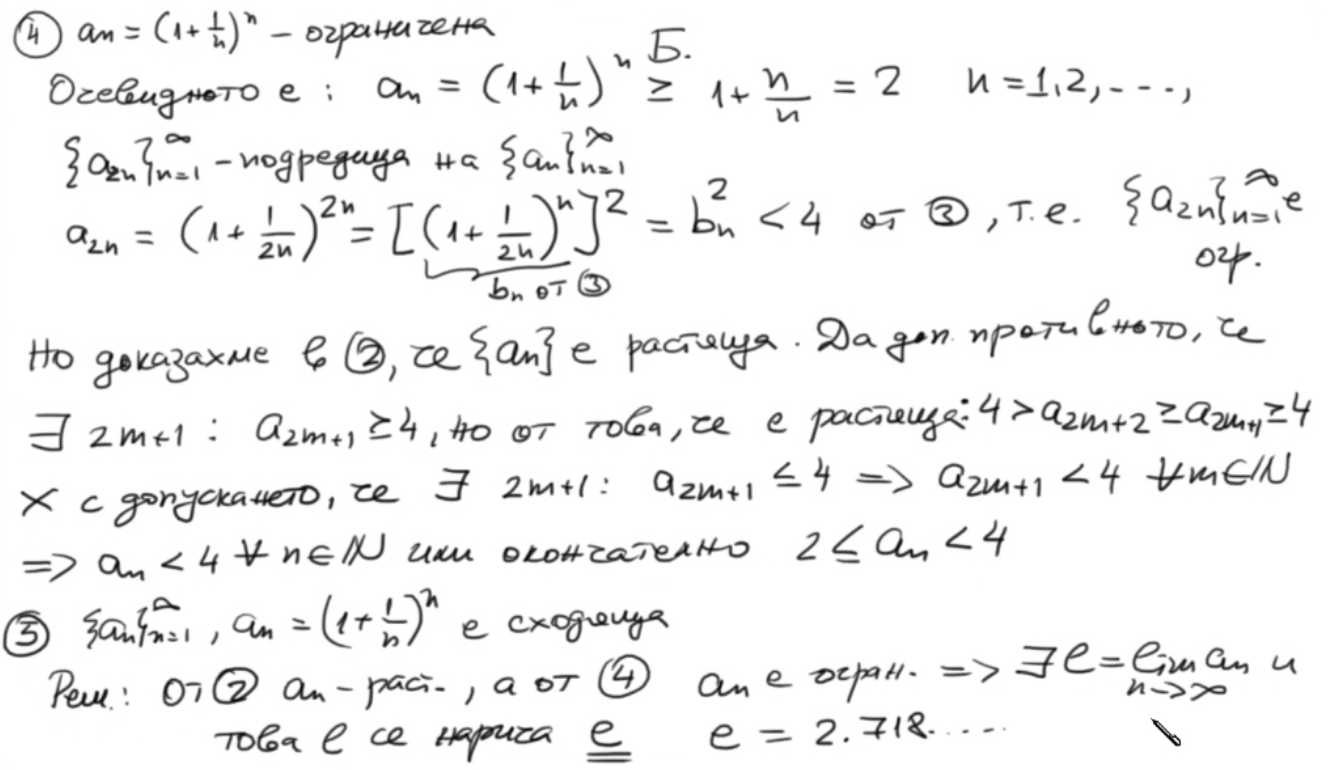 ④ aₙ = (1 + 1/n)ⁿ – ограничена
Очевидното е : aₙ = (1 + 1/n)ⁿ ≥ 1 + n/n = 2 n = 1,2,...,
Б.
{a₂ₙ}ₙ₌₁^∞ – подредица на {aₙ}ₙ₌₁^∞
a₂ₙ = (1 + 1/2n)²ⁿ = [(1 + 1/2n)ⁿ]² = bₙ² < 4 от ③, т.е. {a₂ₙ}ₙ₌₁^∞ е
огр.
bₙ от ③
Но доказахме в ②, че {aₙ} е растяща. Да доп. противното, че
∃ 2m+1 : a₂ₘ₊₁ ≥ 4, но от това, че е растяща: 4 > a₂ₘ₊₂ ≥ a₂ₘ₊₁ ≥ 4
× с допускането, че ∃ 2m+1 : a₂ₘ₊₁ ≤ 4 => a₂ₘ₊₁ < 4 ∀m∈ℕ
=> aₙ < 4 ∀ n∈ℕ или окончателно 2 ≤ aₙ < 4
⑤ {aₙ}ₙ₌₁^∞, aₙ = (1 + 1/n)ⁿ е сходяща
Реш.: От ② aₙ – раст., а от ④ aₙ е огран. => ∃ ℓ = lim aₙ и
n->∞
това ℓ се нарича e e = 2.718.....